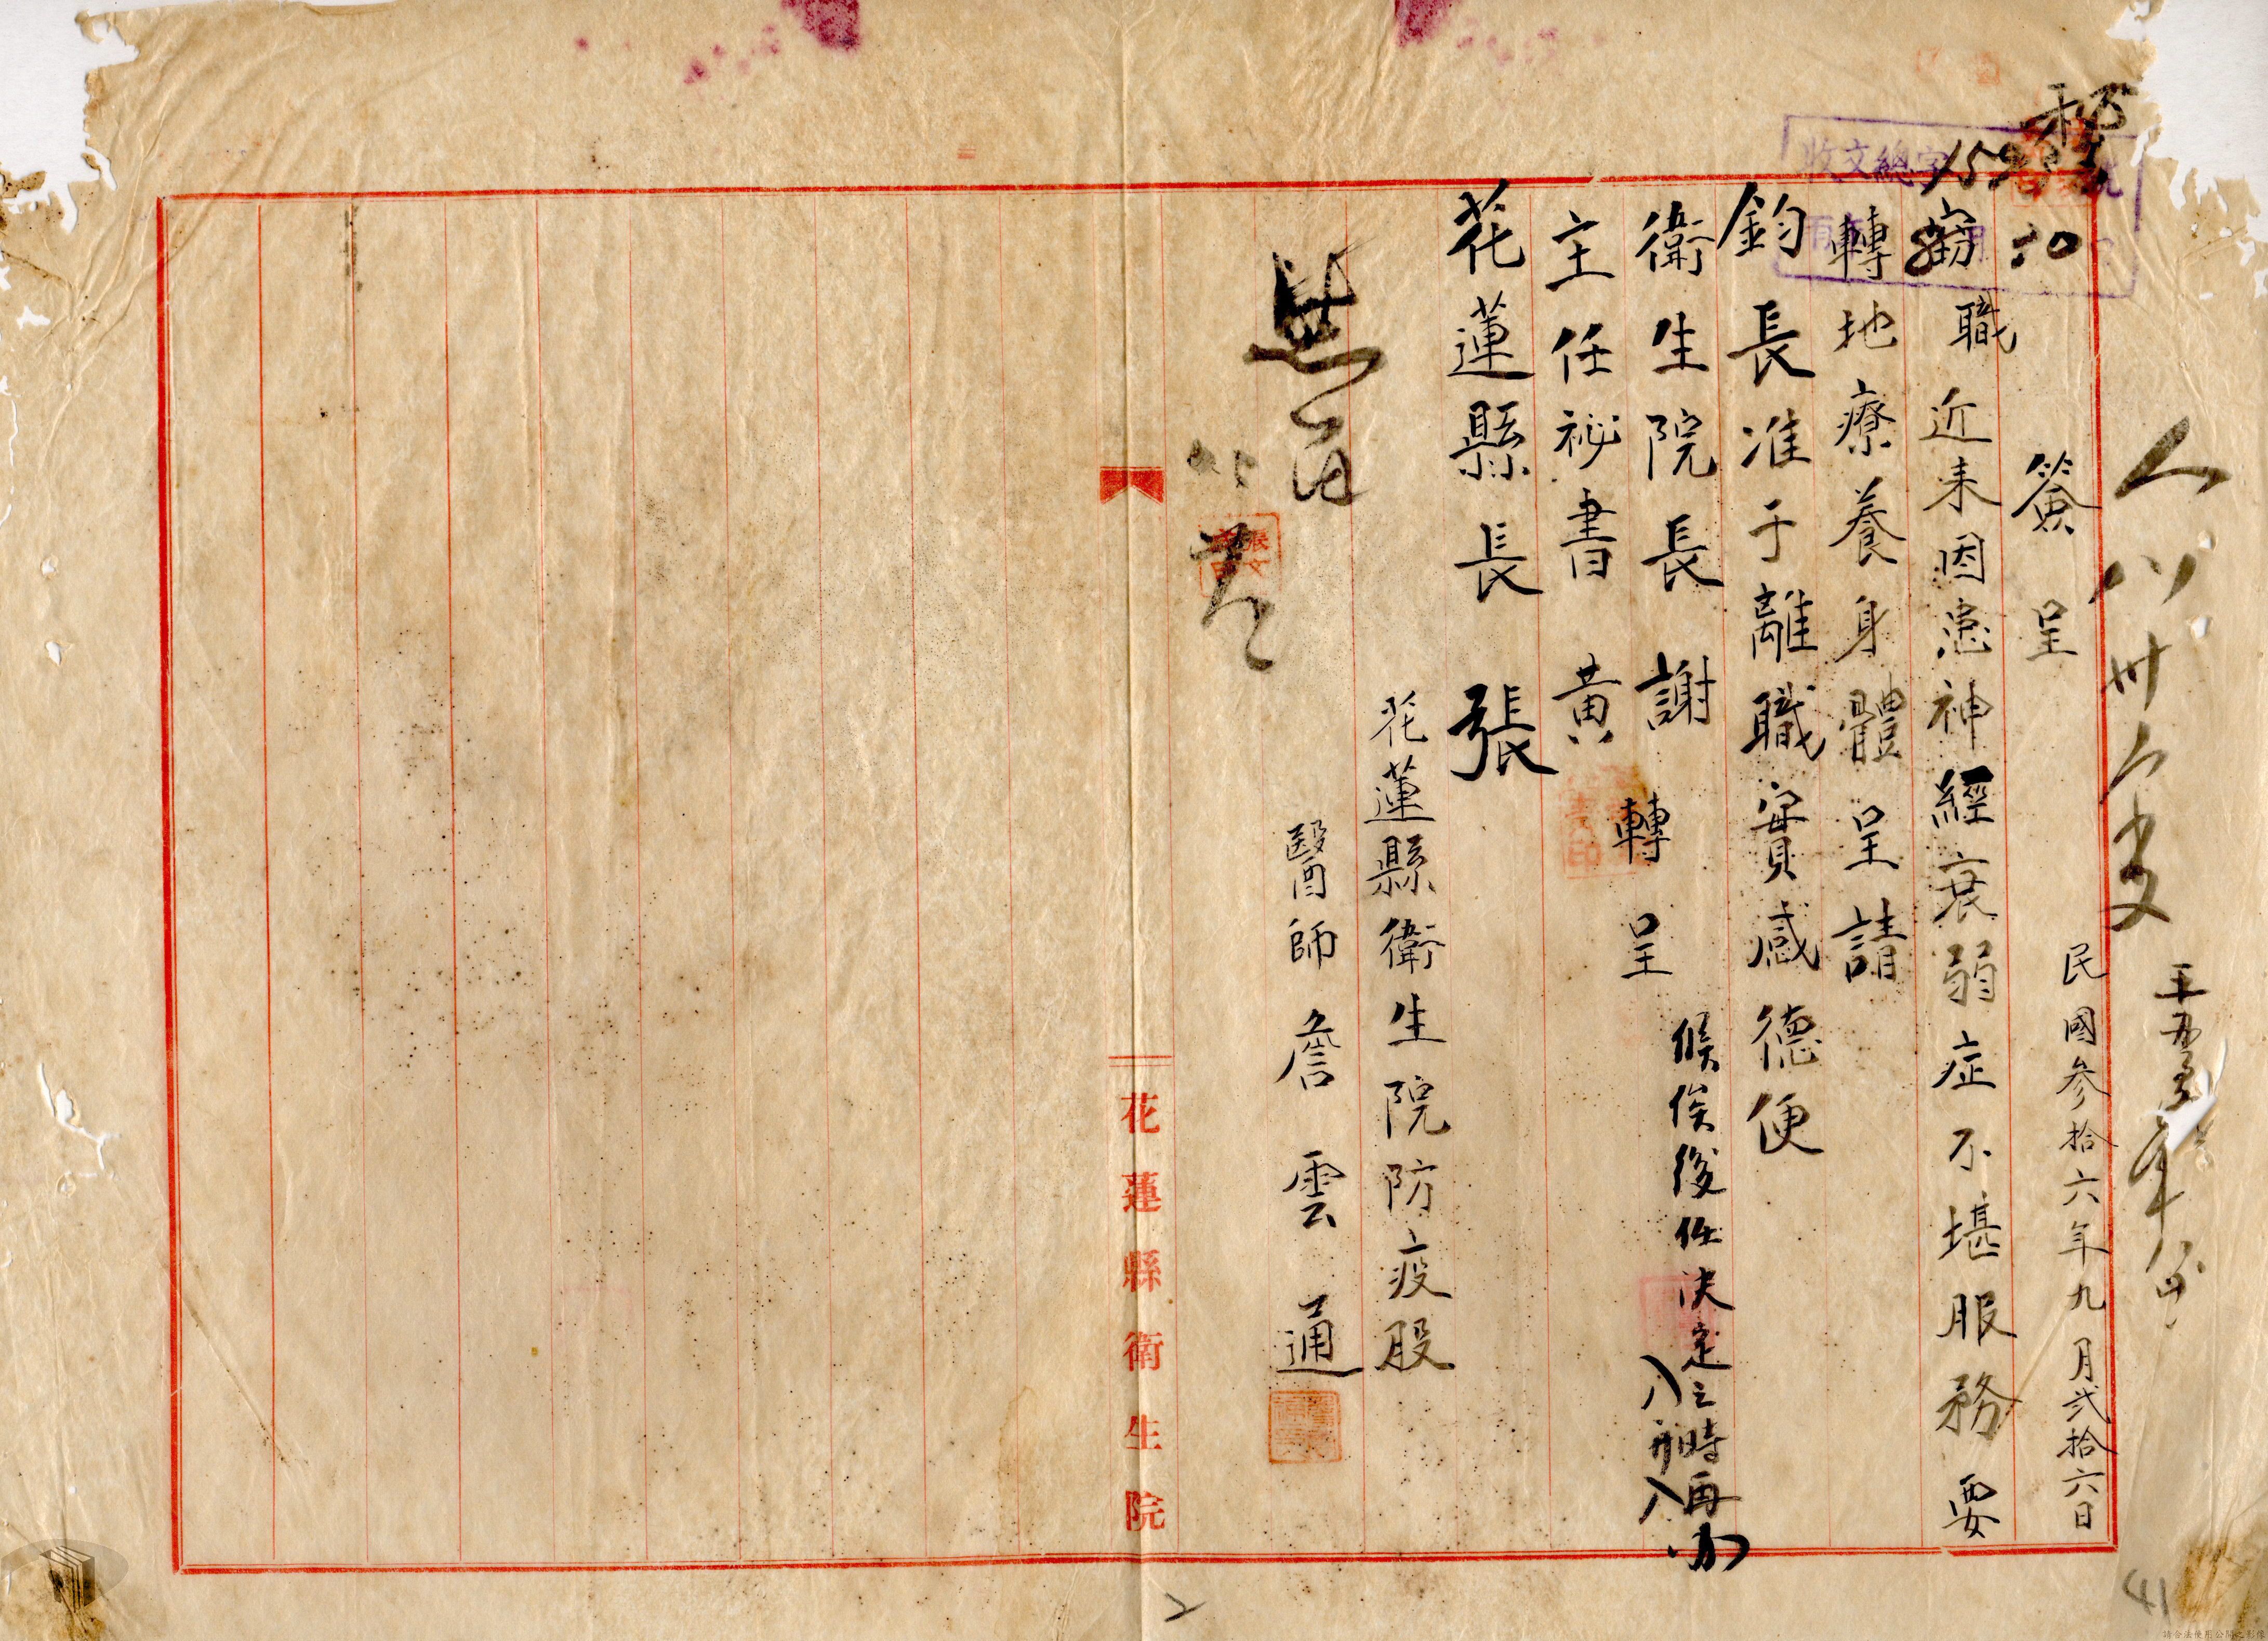 簽呈
民國參拾六年九月弐拾六日
竊職近来因患神經衰弱症不堪服務要
轉地療養身體呈請
鈞長准于離職實感德便
衛生院長謝
轉呈
主任祕書黃
花蓮縣長張
花蓮縣衛生院防疫股
醫師詹雲通
候俟後任決定之時再办
花蓮縣衛生院
收文總字
2
41
請合法使用公開之影像